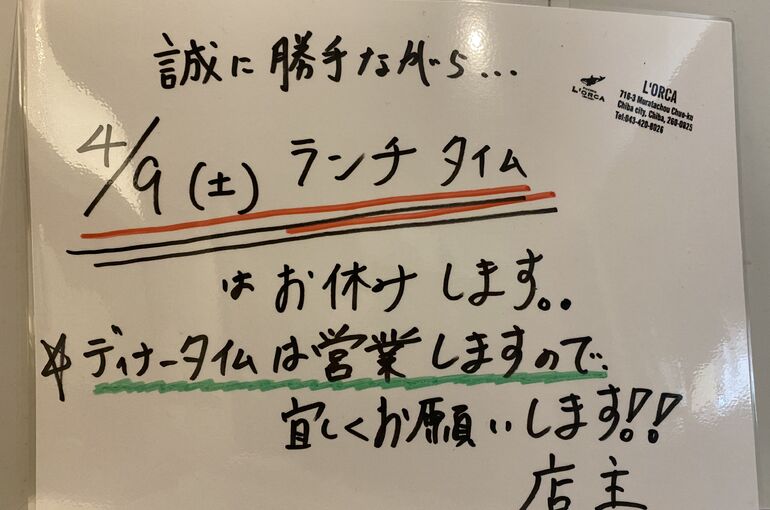 誠に勝手ながら...
L'ORCA
L'ORCA
716-3 Muratachou Chuo-ku
Chiba city, Chiba, 260-0825
Tel:043-420-8026
4/9(土) ランチ タイム
は お休み します。。
☆ディナータイムは営業しますので、
宜しくお願いします!!
店主